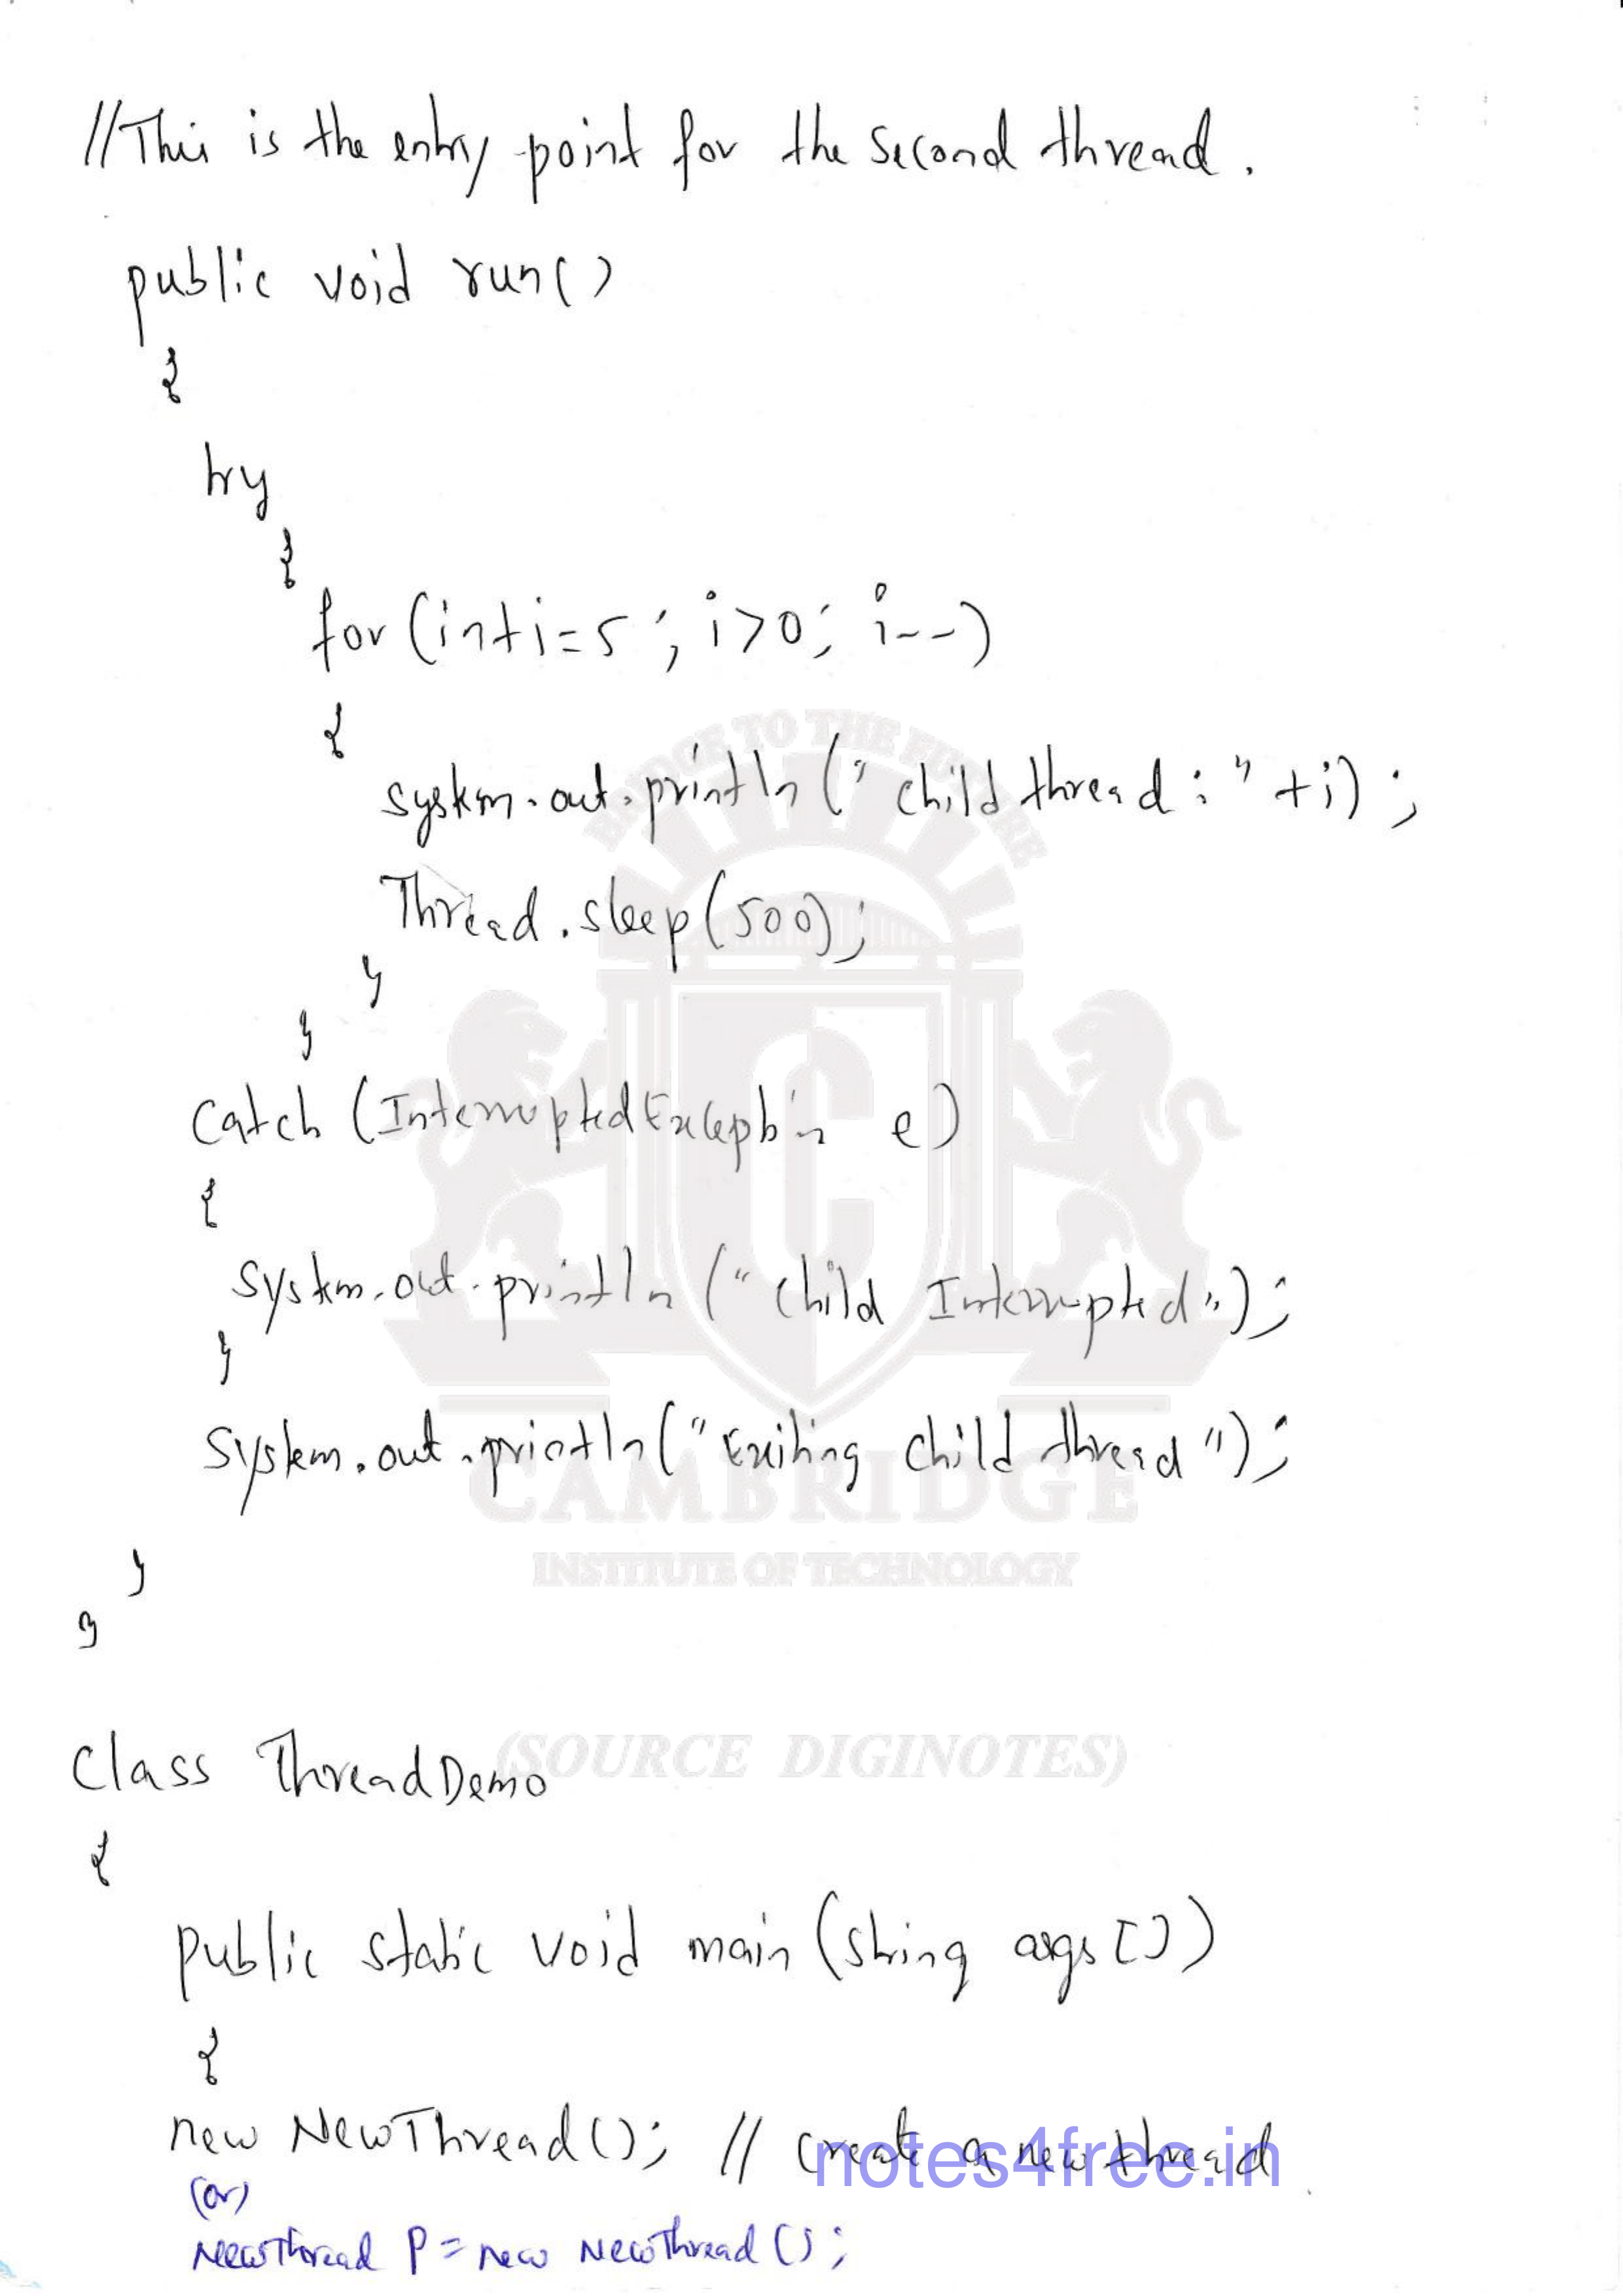 //This is the entry point for the second thread.
public void run()
{
try
{
for(int i=5; i>0; i--)
{
system.out.println("child thread: "+i);
Thread.sleep(500);
}
}
catch (InterruptedException e)
{
System.out.println("child Interrupted");
}
System.out.println("Exiting child thread");
}
}
class ThreadDemo
{
public static void main(string args[])
{
new NewThread(); // create a new thread
(or)
NewThread p = new NewThread();
BRIDGE TO THE FUTURE
C
CAMBRIDGE
INSTITUTE OF TECHNOLOGY
(SOURCE DIGINOTES)
notes4free.in